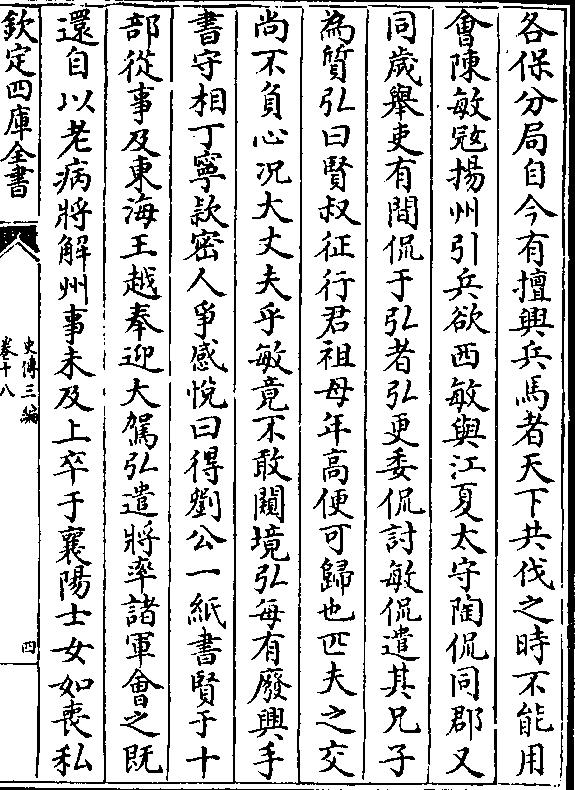 各保分局自今有擅興兵馬者天下共伐之時不能用
會陳敏寇揚州引兵欲西敏與江夏太守陶侃同郡又
同歲舉吏有間侃于弘者弘更委侃討敏侃遣其兄子
為質弘曰賢叔征行君祖母年高便可歸也匹夫之交
尚不負心况大丈夫乎敏竟不敢闚境弘每有廢興手
書守相丁寧款密人爭感悅曰得劉公一紙書賢于十
部從事及東海王越奉迎大駕弘遣將率諸軍會之既
還自以老病將解州事未及上卒于襄陽士女如喪私
欽定四庫全書
史傳三編
卷十八
四